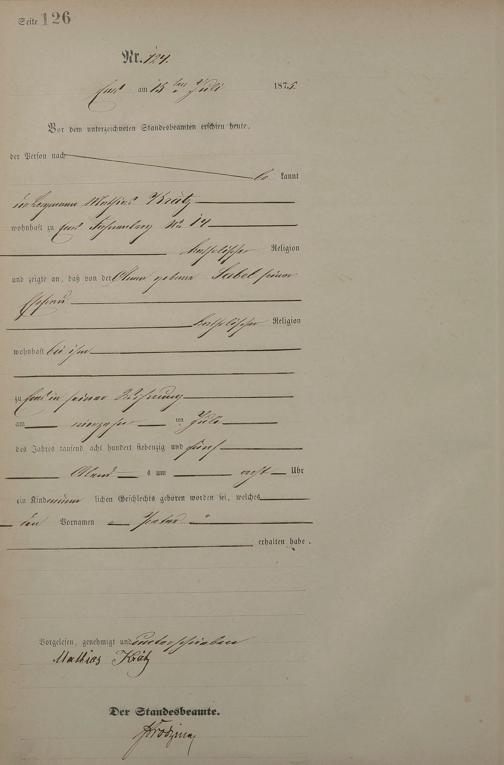 Seite 126
Nr. 124.
Ems am 15ten Juli 1875.
Vor dem unterzeichneten Standesbeamten erschien heute,
der Person nach
be kannt
der Bergmann Mathias Krätz
wohnhaft zu Ems No 14
katholischer Religion
und zeigte an, daß von der geborne Sabel seiner
Ehefrau
katholischer Religion
wohnhaft bei ihm
zu Ems in seiner Wohnung
am vierzehn ten Juli
des Jahres tausend acht hundert siebenzig und fünf
Abend s um acht Uhr
ein Kind männ lichen Geschlechts geboren worden sei, welches
den Vornamen Peter
erhalten habe.
Vorgelesen, genehmigt und unterschrieben
Mathias Krätz
Der Standesbeamte.